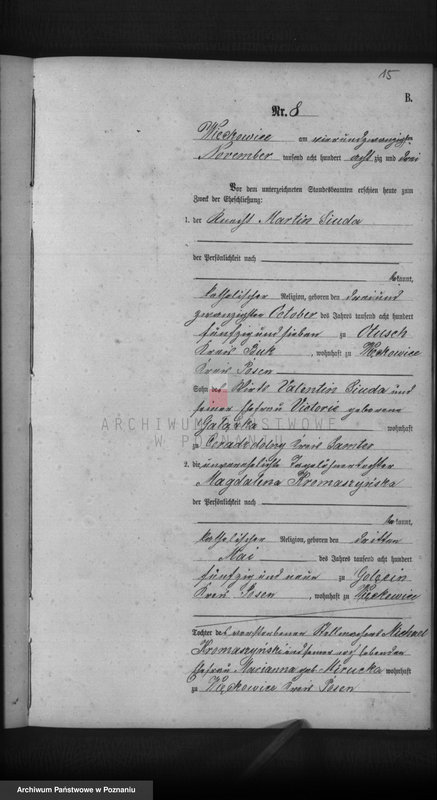 15
B.
Nr. 8
Więckowice am vierundzwanzigsten
November tausend acht hundert achtzig und drei
Vor dem unterzeichneten Standesbeamten erschien heute zum
Zweck der Eheschließung:
1. der Knecht Martin Siuda
der Persönlichkeit nach
bekannt,
katholischer Religion, geboren den dreiund
zwanzigsten October des Jahres tausend acht hundert
fünfzig und sieben zu Otusch
Kreis Buk, wohnhaft zu Więckowice
Kreis Posen
Sohn des Wirts Valentin Siuda und
seiner Ehefrau Victoria geborene
wohnhaft
zu Ceradzdolny Kreis Samter
2. die unverehelichte Tagelöhnertochter
Magdalena Kromaszyńska
der Persönlichkeit nach
bekannt,
katholischer Religion, geboren den dritten
Mai des Jahres tausend acht hundert
fünfzig und neun zu
Kreis Posen, wohnhaft zu Więckowice
Tochter des verstorbenen Stellmachers Michael
Kromaszyński und seiner noch lebenden
Ehefrau Marianna geb. Mirucka wohnhaft
zu Więckowice Kreis Posen
ARCHIWUM PAŃSTWOWE
W POZNANIU
Archiwum Państwowe w Poznaniu